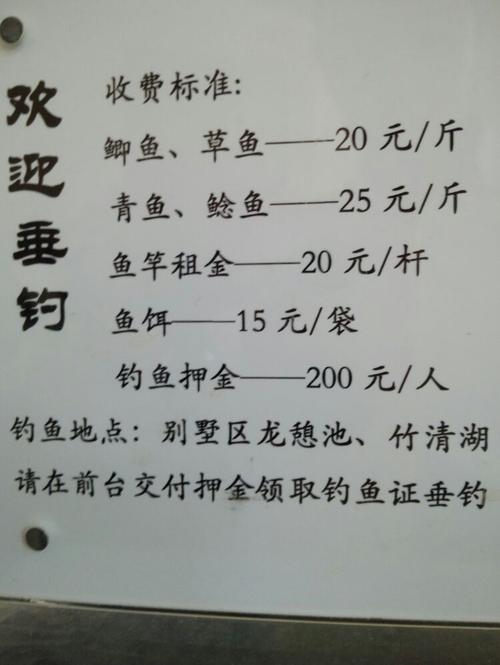 欢迎垂钓
收费标准:
鲫鱼、草鱼——20 元/斤
青鱼、鲶鱼——25 元/斤
鱼竿租金——20 元/杆
鱼饵——15 元/袋
钓鱼押金——200 元/人
钓鱼地点: 别墅区龙憩池、竹清湖
请在前台交付押金领取钓鱼证垂钓